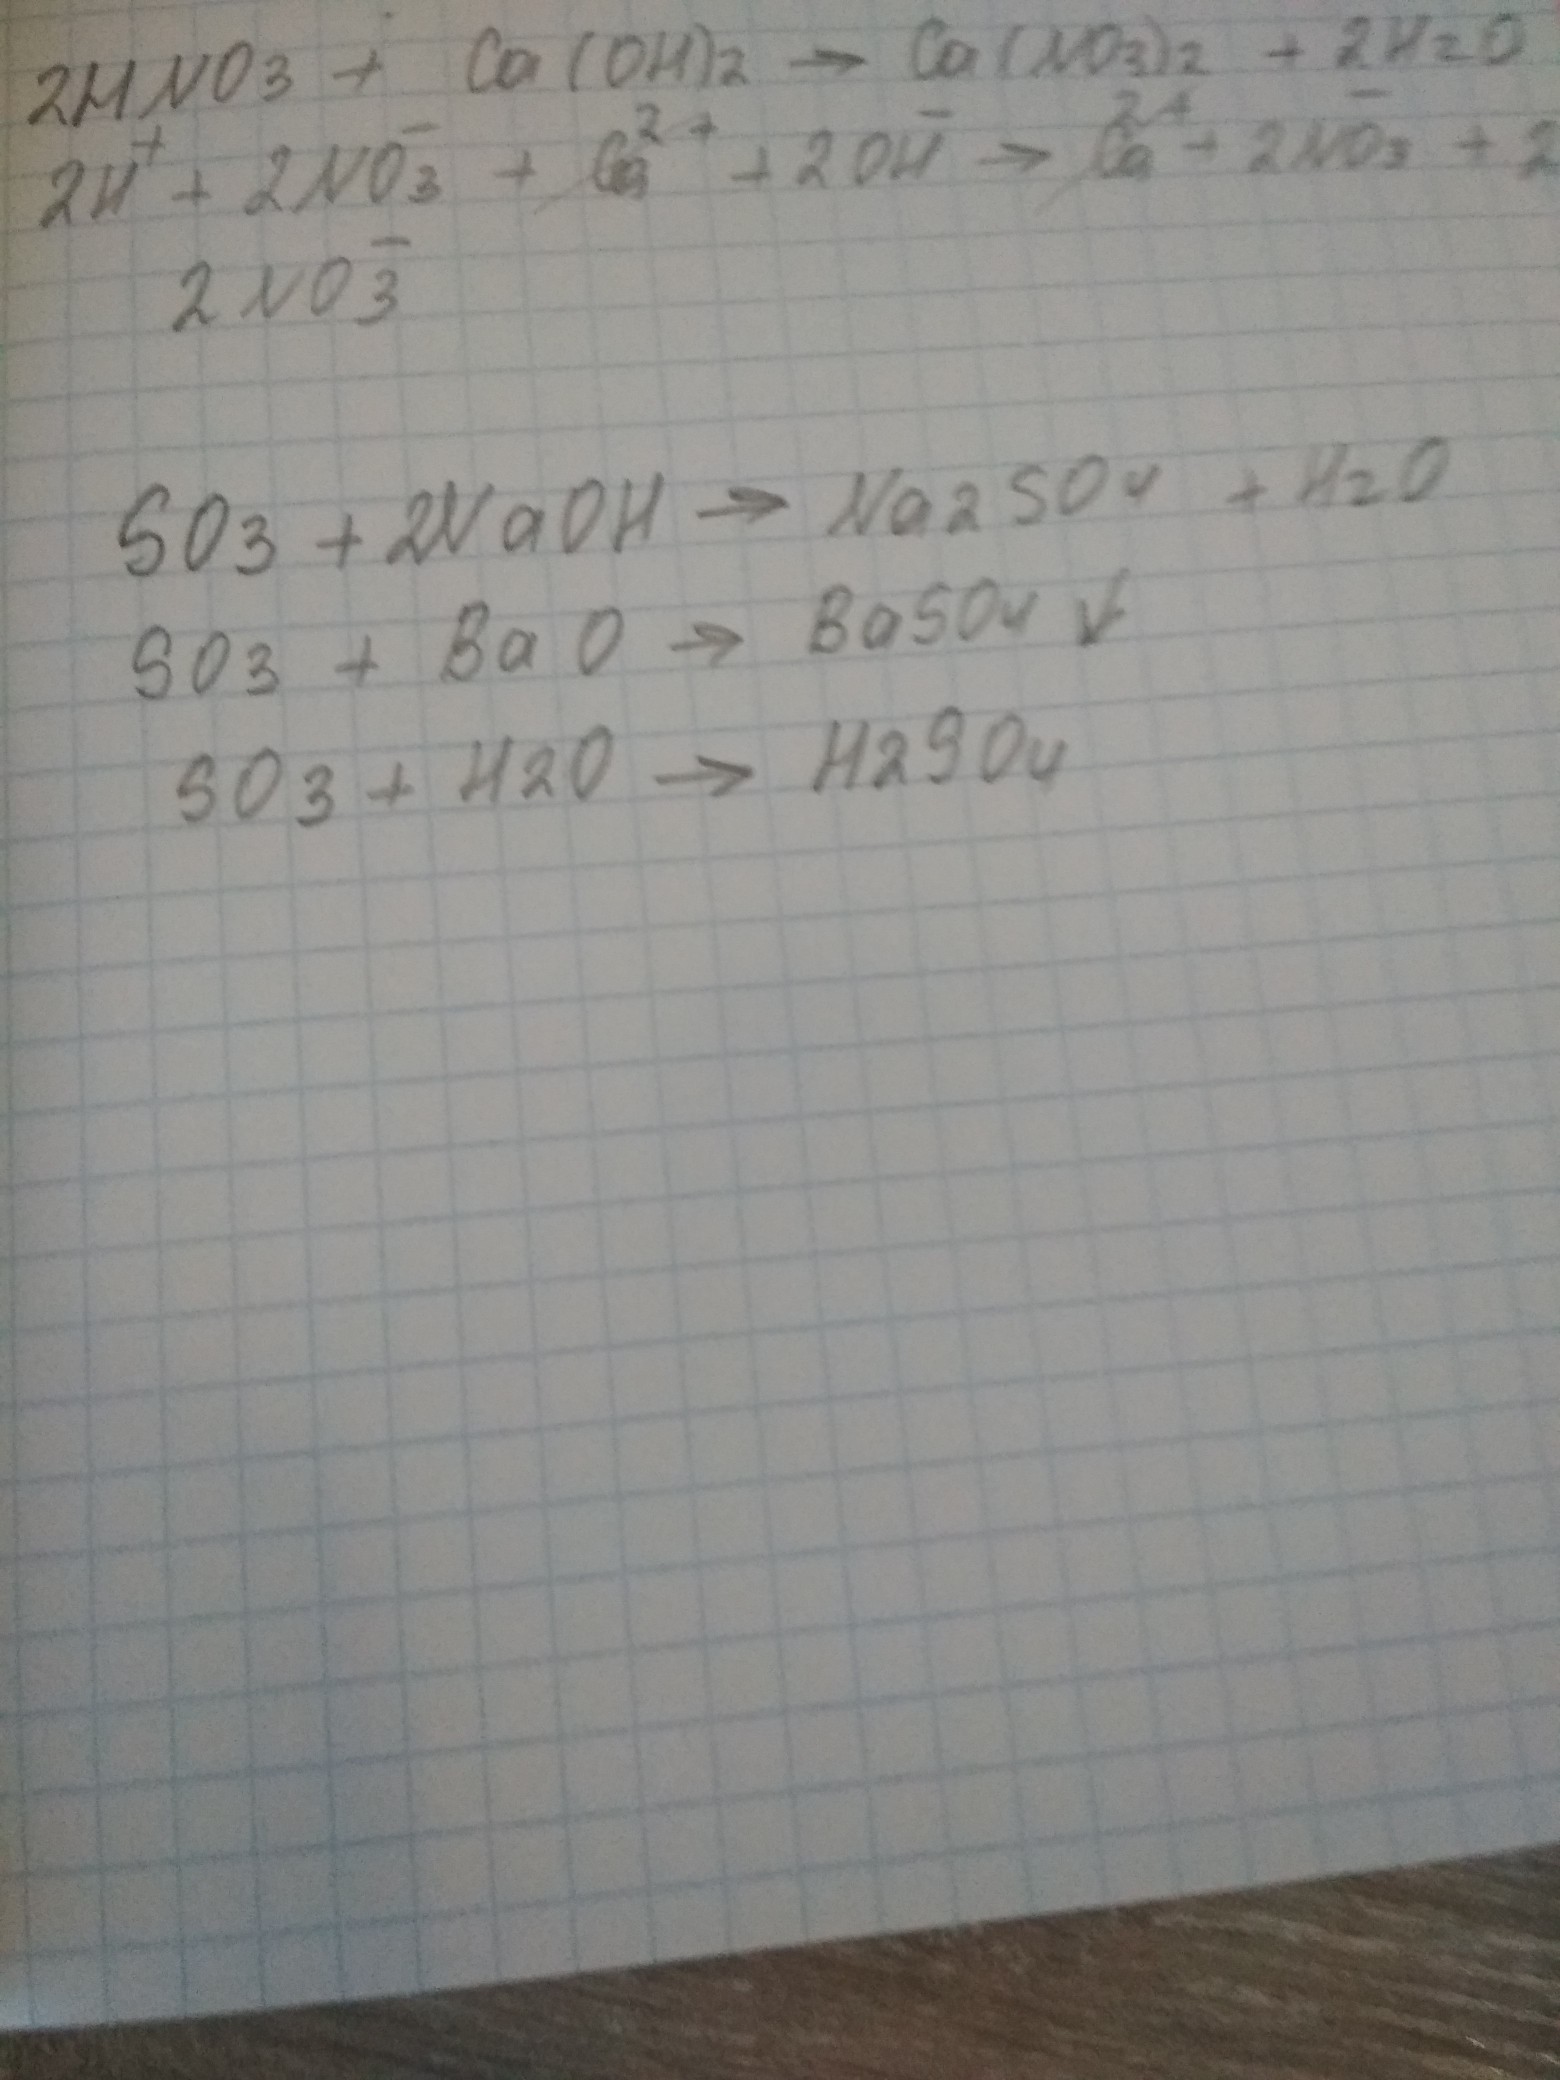 2HNO3 + Ca(OH)2 → Ca(NO3)2 + 2H2O
2H⁺ + 2NO3⁻ + Ca²⁺ + 2OH⁻ → Ca²⁺ + 2NO3⁻ + 2
2NO3⁻
SO3 + 2NaOH → Na2SO4 + H2O
SO3 + BaO → BaSO4 ↓
SO3 + H2O → H2SO4